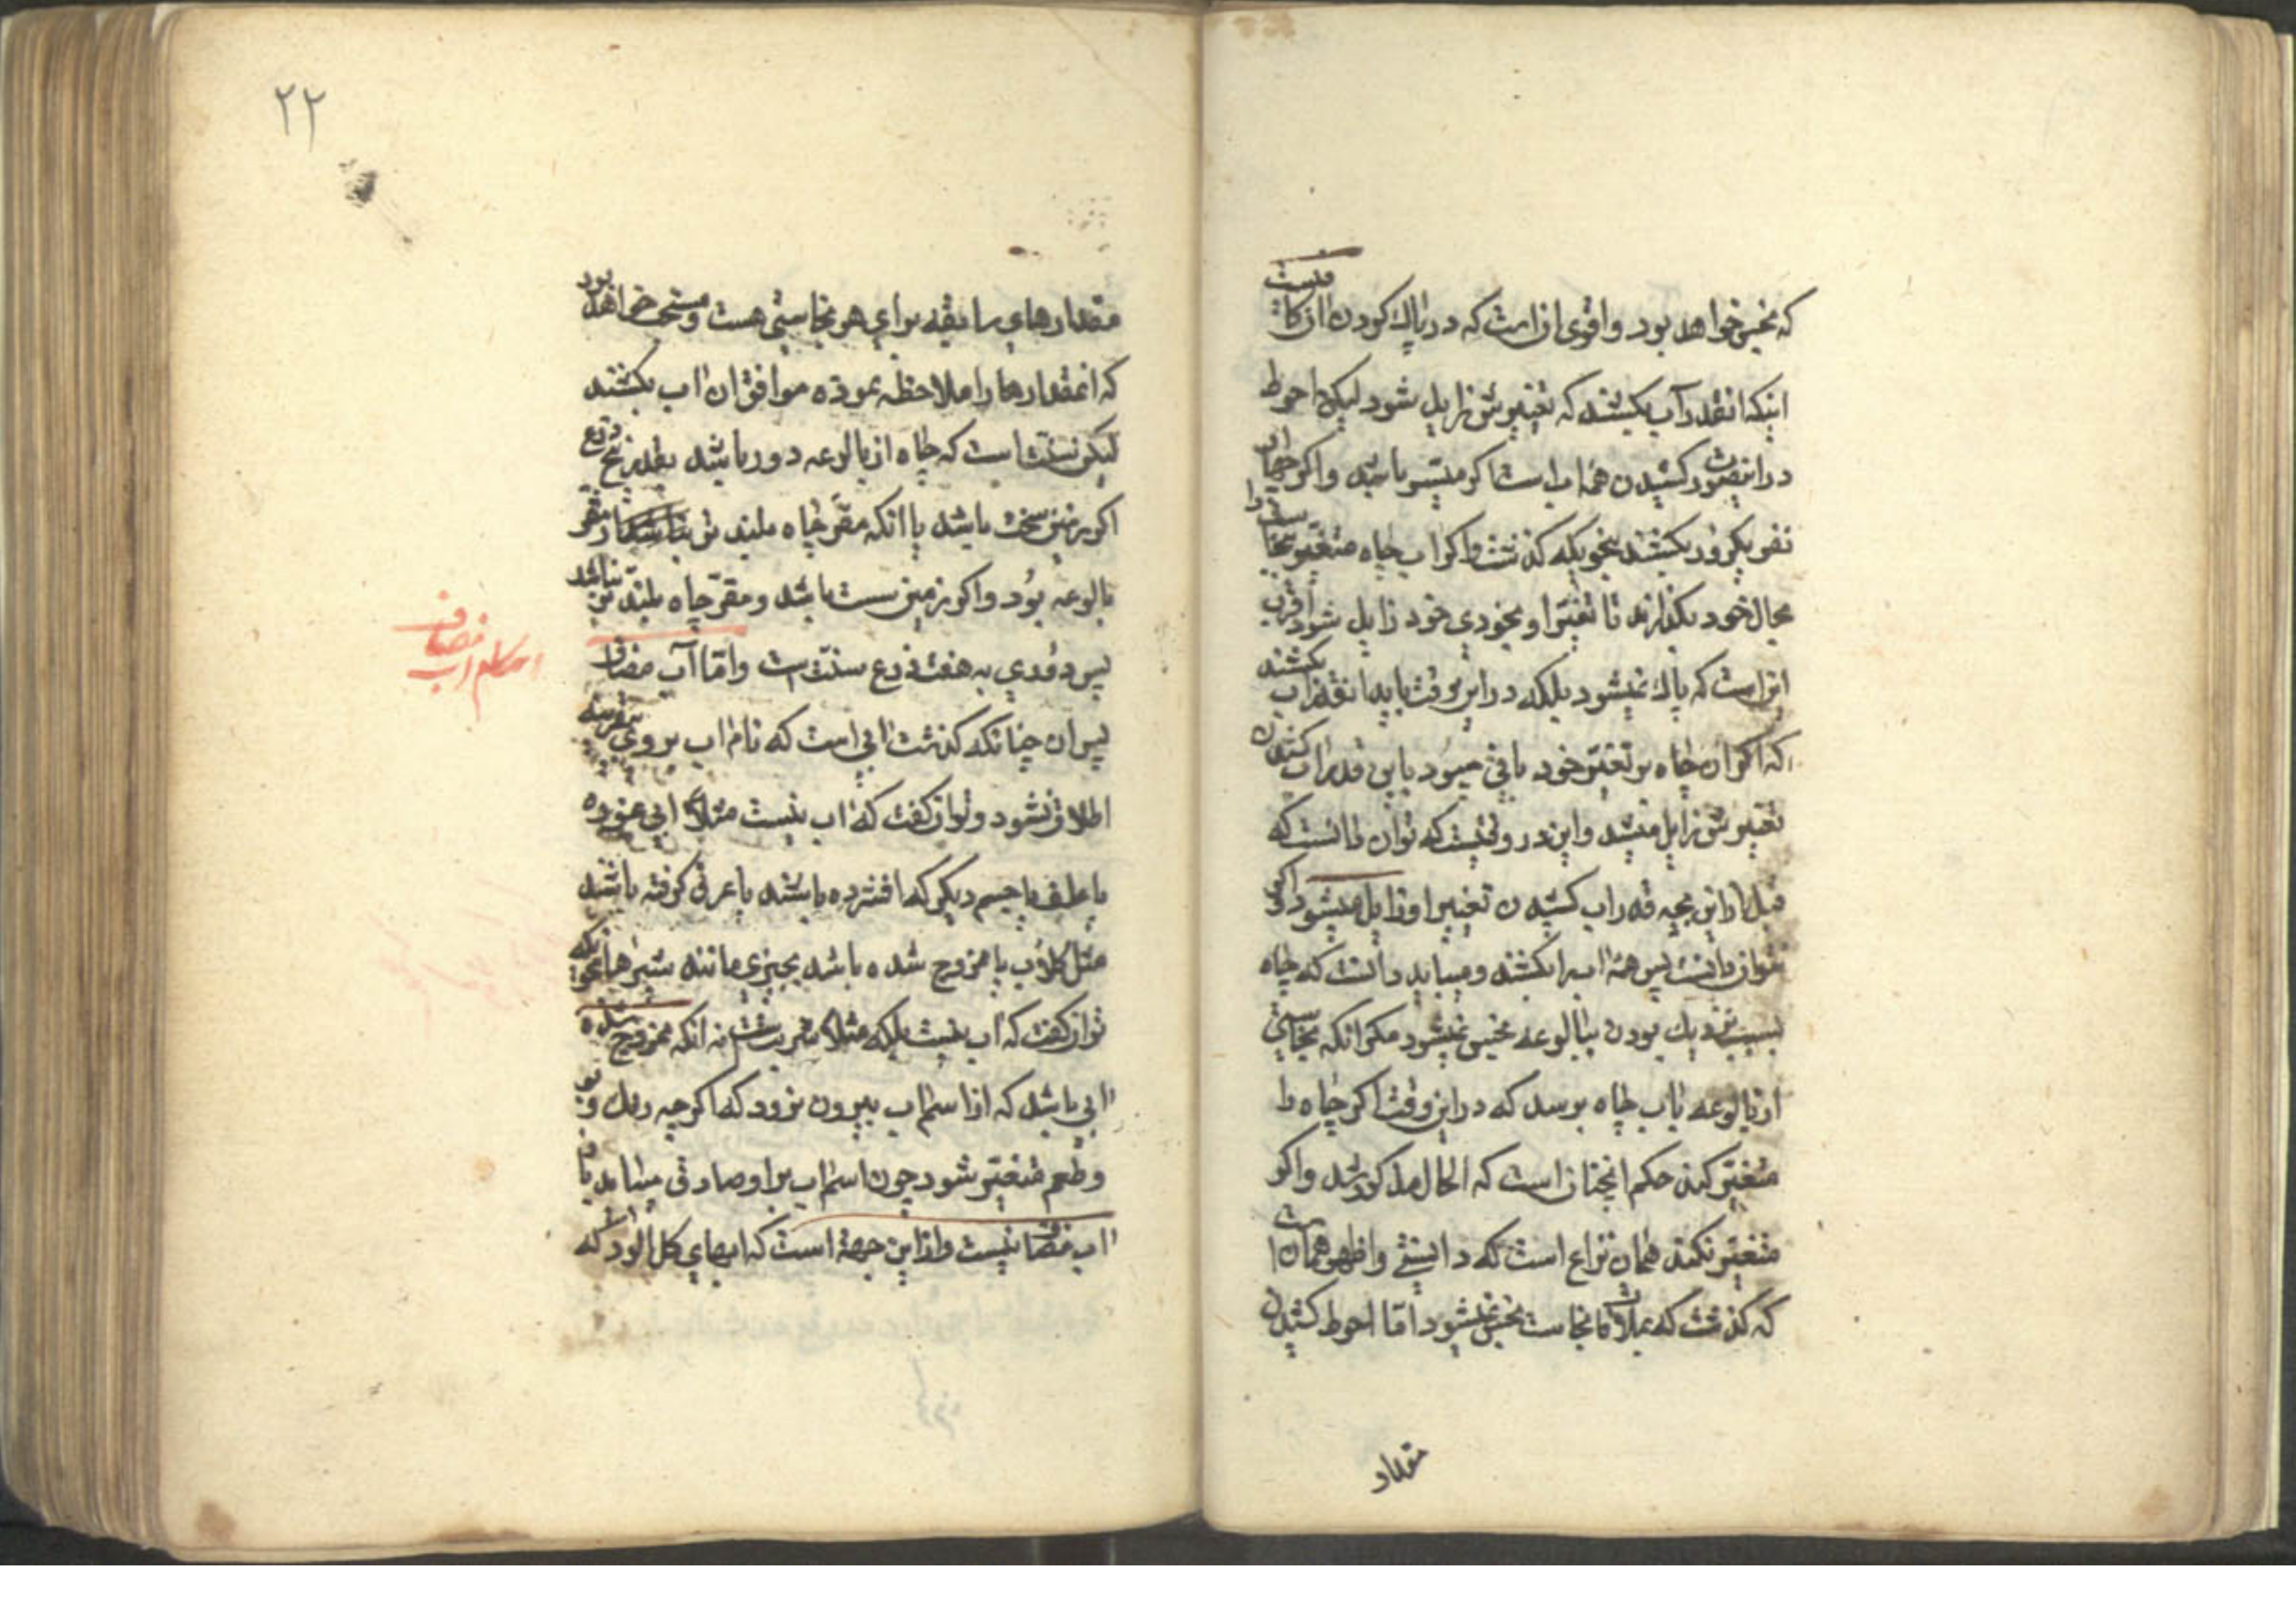 که نجس خواهد بود و اقوی ان است که در پاک کردن ان کافیست
اینکه انقدر آب بکشند که تغییرش زایل شود لیکن احوط
در اینصورت کشیدن همه اب است اگر میسر باشد و اگر نه چهار
نفر یکروز بکشند بنحویکه گذشت و اگر اب چاه متغیر بنجاست را
بحال خود بگذارند تا تغیر او بخودی خود زایل شود اقرب
ان است که پاک نمیشود بلکه در این وقت باید انقدر اب بکشند
که اگر ان چاه بر تغیر خود باقی میبود باین قدر اب کشیدن
تغییرش زایل میشد و این در وقتیست که توان دانست که
قبل از این بچه قدر اب کشیدن تغییر او زایل میشود و اگر
نتوان دانست پس همه اب را بکشند و میباید دانست که چاه
بسبب نزدیک بودن ببالوعه نجس نمیشود مگر انکه نجاستی
از بالوعه باب چاه برسد که در این وقت اگر چاه را
متغیر کند حکم انچنان است که الحال مذکور شد و اگر
متغیر نکند همان نزاع است که دانستی و اظهر همان است
که گذشت که بملاقات نجاست نجس نمیشود اما احوط کشیدن
مقدار
۲۲
مقدارهای سابقه برای هر نجاستی هست و مستحب خواهد بود
که انمقدارها را ملاحظه نموده موافق ان اب بکشند
لیکن سنت است که چاه از بالوعه دور باشد بقدر پنج ذرع
اگر زمین سخت باشد یا انکه مقر چاه بلند تر باشد از مقر
بالوعه بود و اگر زمین سست باشد و مقر چاه بلند تر نباشد
پس دوری به هفت ذرع سنت است و اما آب مضاف
احکام اب مضاف
پس ان چنانکه گذشت ابی است که نام اب بر وی
اطلاق نشود و توان گفت که اب نیست مثلا ابی
یا علف یا جسم دیگر که افشرده باشند یا عرقی گرفته باشند
مثل گلاب یا ممزوج شده باشد بچیزی مانند شیرها
توان گفت که اب نیست بلکه مثلا شربت است نه انکه ممزوج شده
ابی باشد که از اسم اب بیرون نرود که اگرچه رنگ و بو
و طعم متغیر شود چون اسم اب بر او صادق میاید
اب مضاف نیست و از این جهة است که ابهای گل الود که